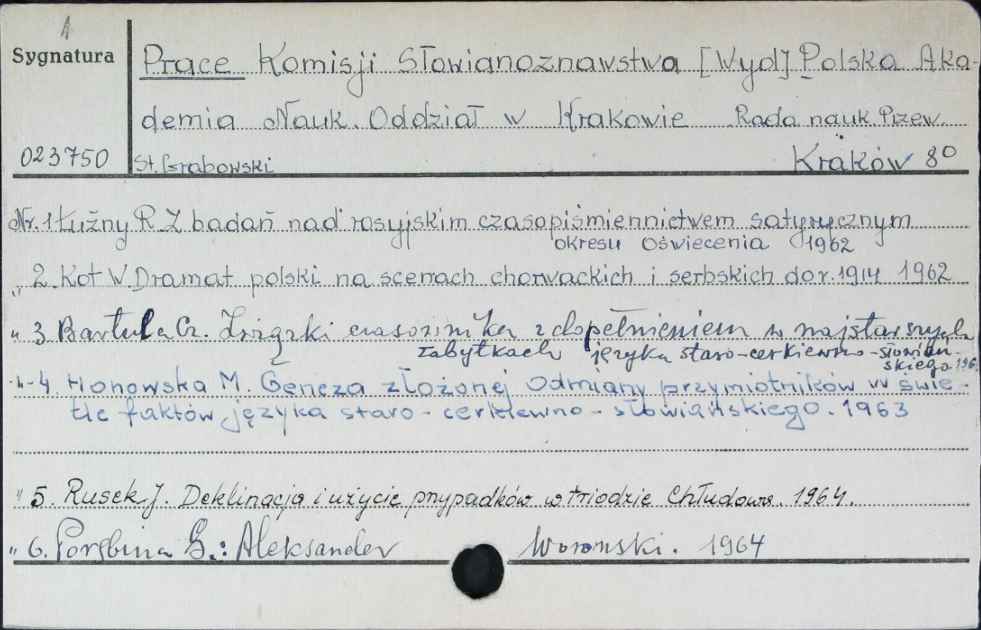 1
Sygnatura
Prace Komisji Słowianoznawstwa [Wyd] Polska Aka-
demia Nauk. Oddział w Krakowie Rada nauk. Przew.
023750 St. Grabowski Kraków 8°
Nr. 1 Łużny R Z badań nad rosyjskim czasopiśmiennictwem satyrycznym
okresu Oświecenia 1962
" 2. Kot W. Dramat polski na scenach chorwackich i serbskich do r. 1914 1962
" 3 Bartula Cz. Związki czasownika z dopełnieniem w najstarszych
zabytkach języka staro-cerkiewno-słowiań-
skiego 196
-"- 4. Honowska M. Geneza złożonej odmiany przymiotników w świe-
tle faktów języka staro-cerkiewno-słowiańskiego. 1963
" 5. Rusek J. Deklinacja i użycie przypadków w triodzie Chłudowa. 1964.
" 6. Porębina G.: Aleksander Woronski. 1964